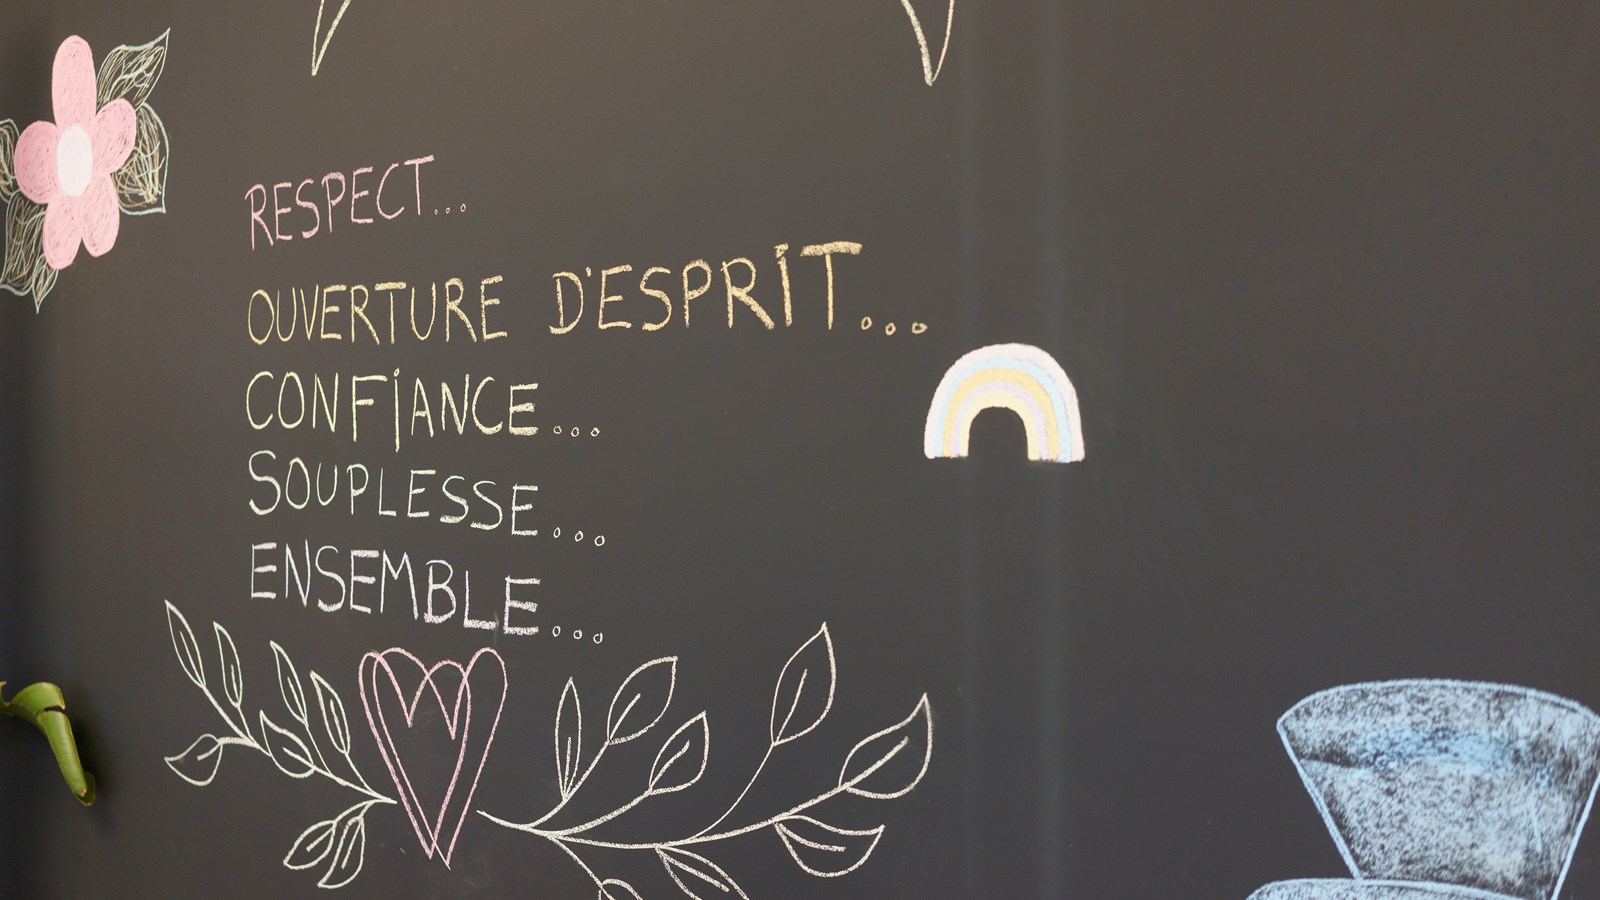 RESPECT...
OUVERTURE D'ESPRIT...
CONFIANCE...
SOUPLESSE...
ENSEMBLE...